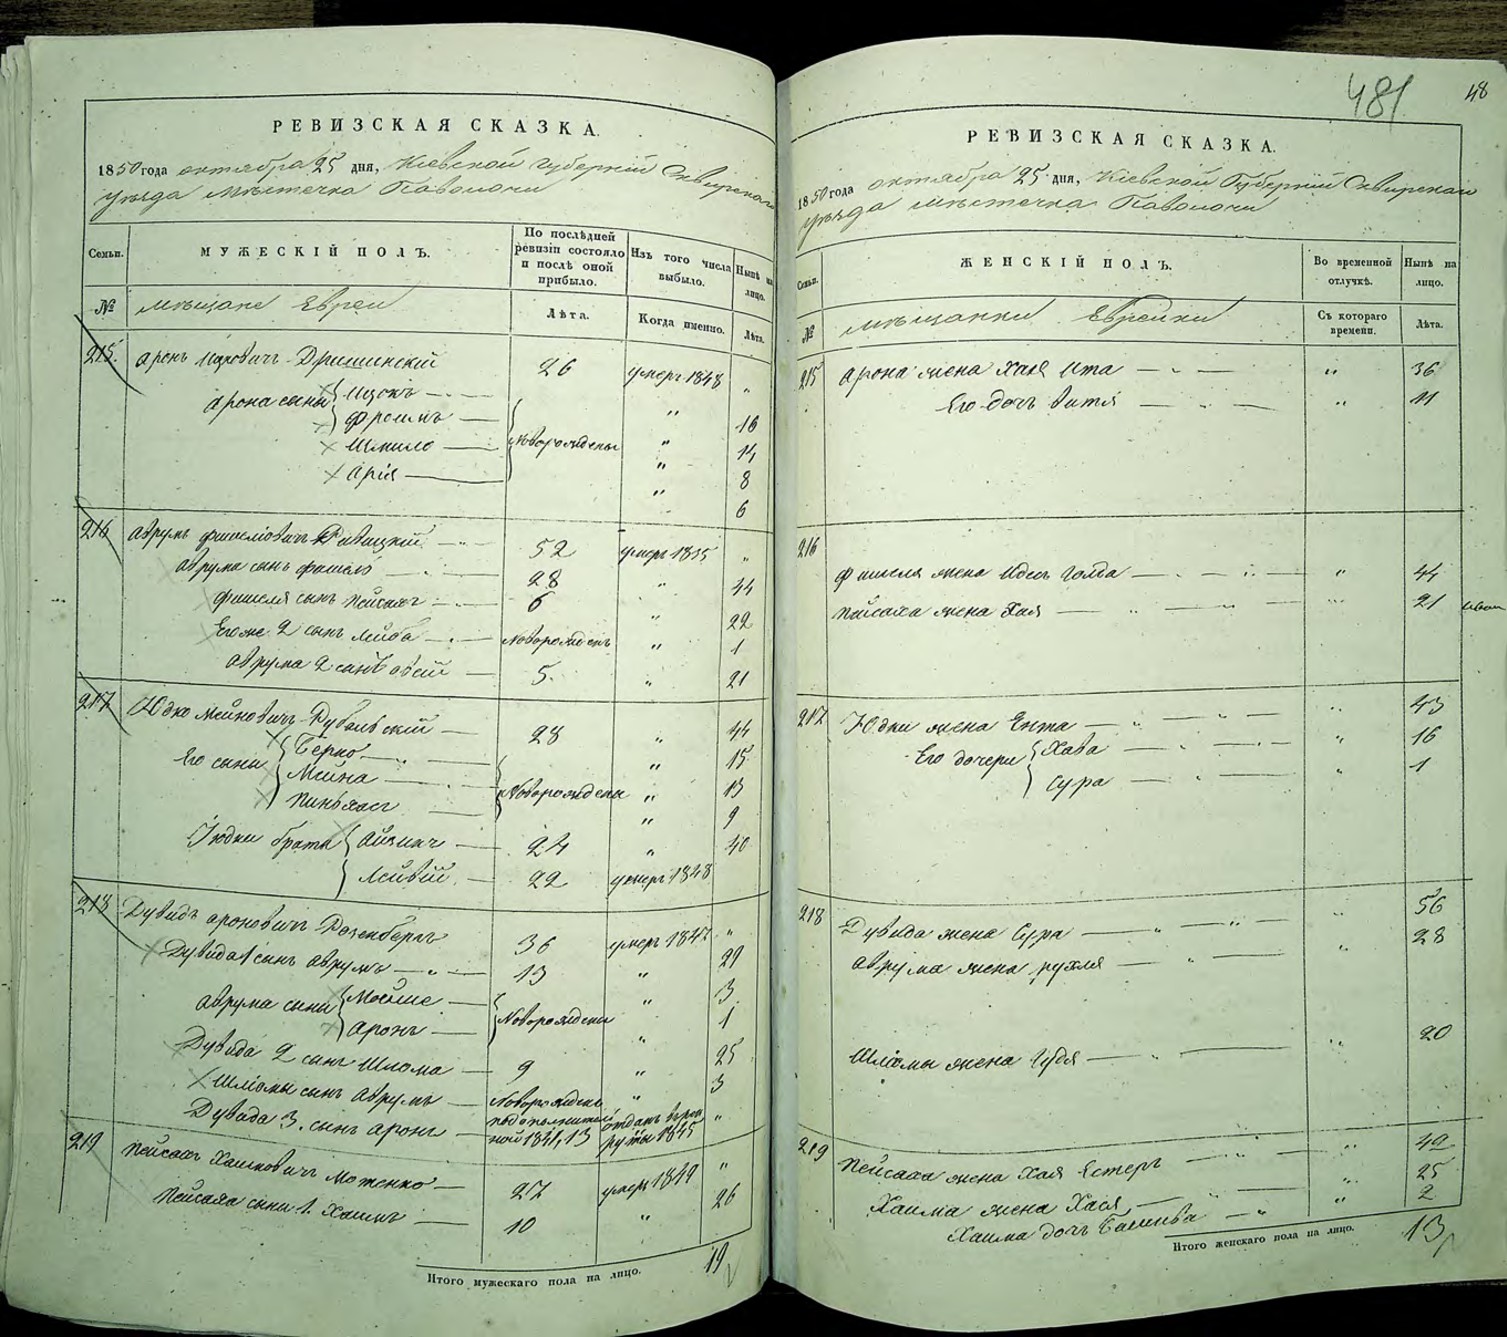 РЕВИЗСКАЯ СКАЗКА.
1850 года октября 25 дня, Кіевской губерніи Сквирскаго
уѣзда мѣстечка Паволочи
Семьи. МУЖЕСКІЙ ПОЛЪ. По послѣдней ревизіи состояло и послѣ оной прибыло. Изъ того числа выбыло. Нынѣ на лицо.
№ мѣщане Евреи Лѣта. Когда именно. Лѣта.
215. Аронъ Ицковичъ 26 умеръ 1848 "
Арона сыны Ицокъ " 16
Фроимъ " 14
Шмило Новорождены " 8
Арія " 6
216 Аврумъ Фишеліовичъ 52 умеръ 1835 "
Аврума сынъ Фишель 28 " 44
Фишеля сынъ Пейсахъ 6 " 22
Его же 2 сынъ Лейба Новорожденъ " 1
Аврума 2 сынъ 5 " 21
217 Юдко Мейновичъ 28 " 44
Его сыны Берко " 15
Мейна Новорождены " 13
Пинхасъ " 9
Юдки братья Айзикъ 24 " 40
Лейвій 22 умеръ 1848
218 Дувидъ Ароновичъ Розенбергъ 36 умеръ 1847 "
Дувида 1 сынъ Аврумъ 13 " 29
Аврума сыны Мойше " 3
Аронъ Новорождены " 1
Дувида 2 сынъ Шлома 9 " 25
Шліомы сынъ Аврумъ Новорожденъ " 3
Дувида 3. сынъ Аронъ по дополнительной 1841, 13 отданъ въ рекруты 1845 "
219 Пейсахъ Хаимовичъ Мотенко 27 умеръ 1849 "
Пейсаха сыны 1. Хаимъ 10 " 26
Итого мужескаго пола на лицо. 19
481
48
РЕВИЗСКАЯ СКАЗКА.
1850 года октября 25 дня, Кіевской Губерніи Сквирскаго
уѣзда мѣстечка Паволочи
Семьи. ЖЕНСКІЙ ПОЛЪ. Во временной отлучкѣ. Нынѣ на лицо.
№ мѣщанки Еврейки Съ котораго времени. Лѣта.
215 Арона жена Хая Ита " 36
Его дочь Витя " 11
216
Фишеля жена Идесъ Голда " 44
Пейсаха жена Хая " 21
217 Юдки жена Ента " 43
Его дочери Хава " 16
Сура " 1
218 Дувида жена Сура " 56
Аврума жена Рухля " 28
Шліомы жена Гудя " 20
219 Пейсаха жена Хая Естеръ " 42
Хаима жена Хася " 25
Хаима дочь " 2
Итого женскаго пола на лицо. 13